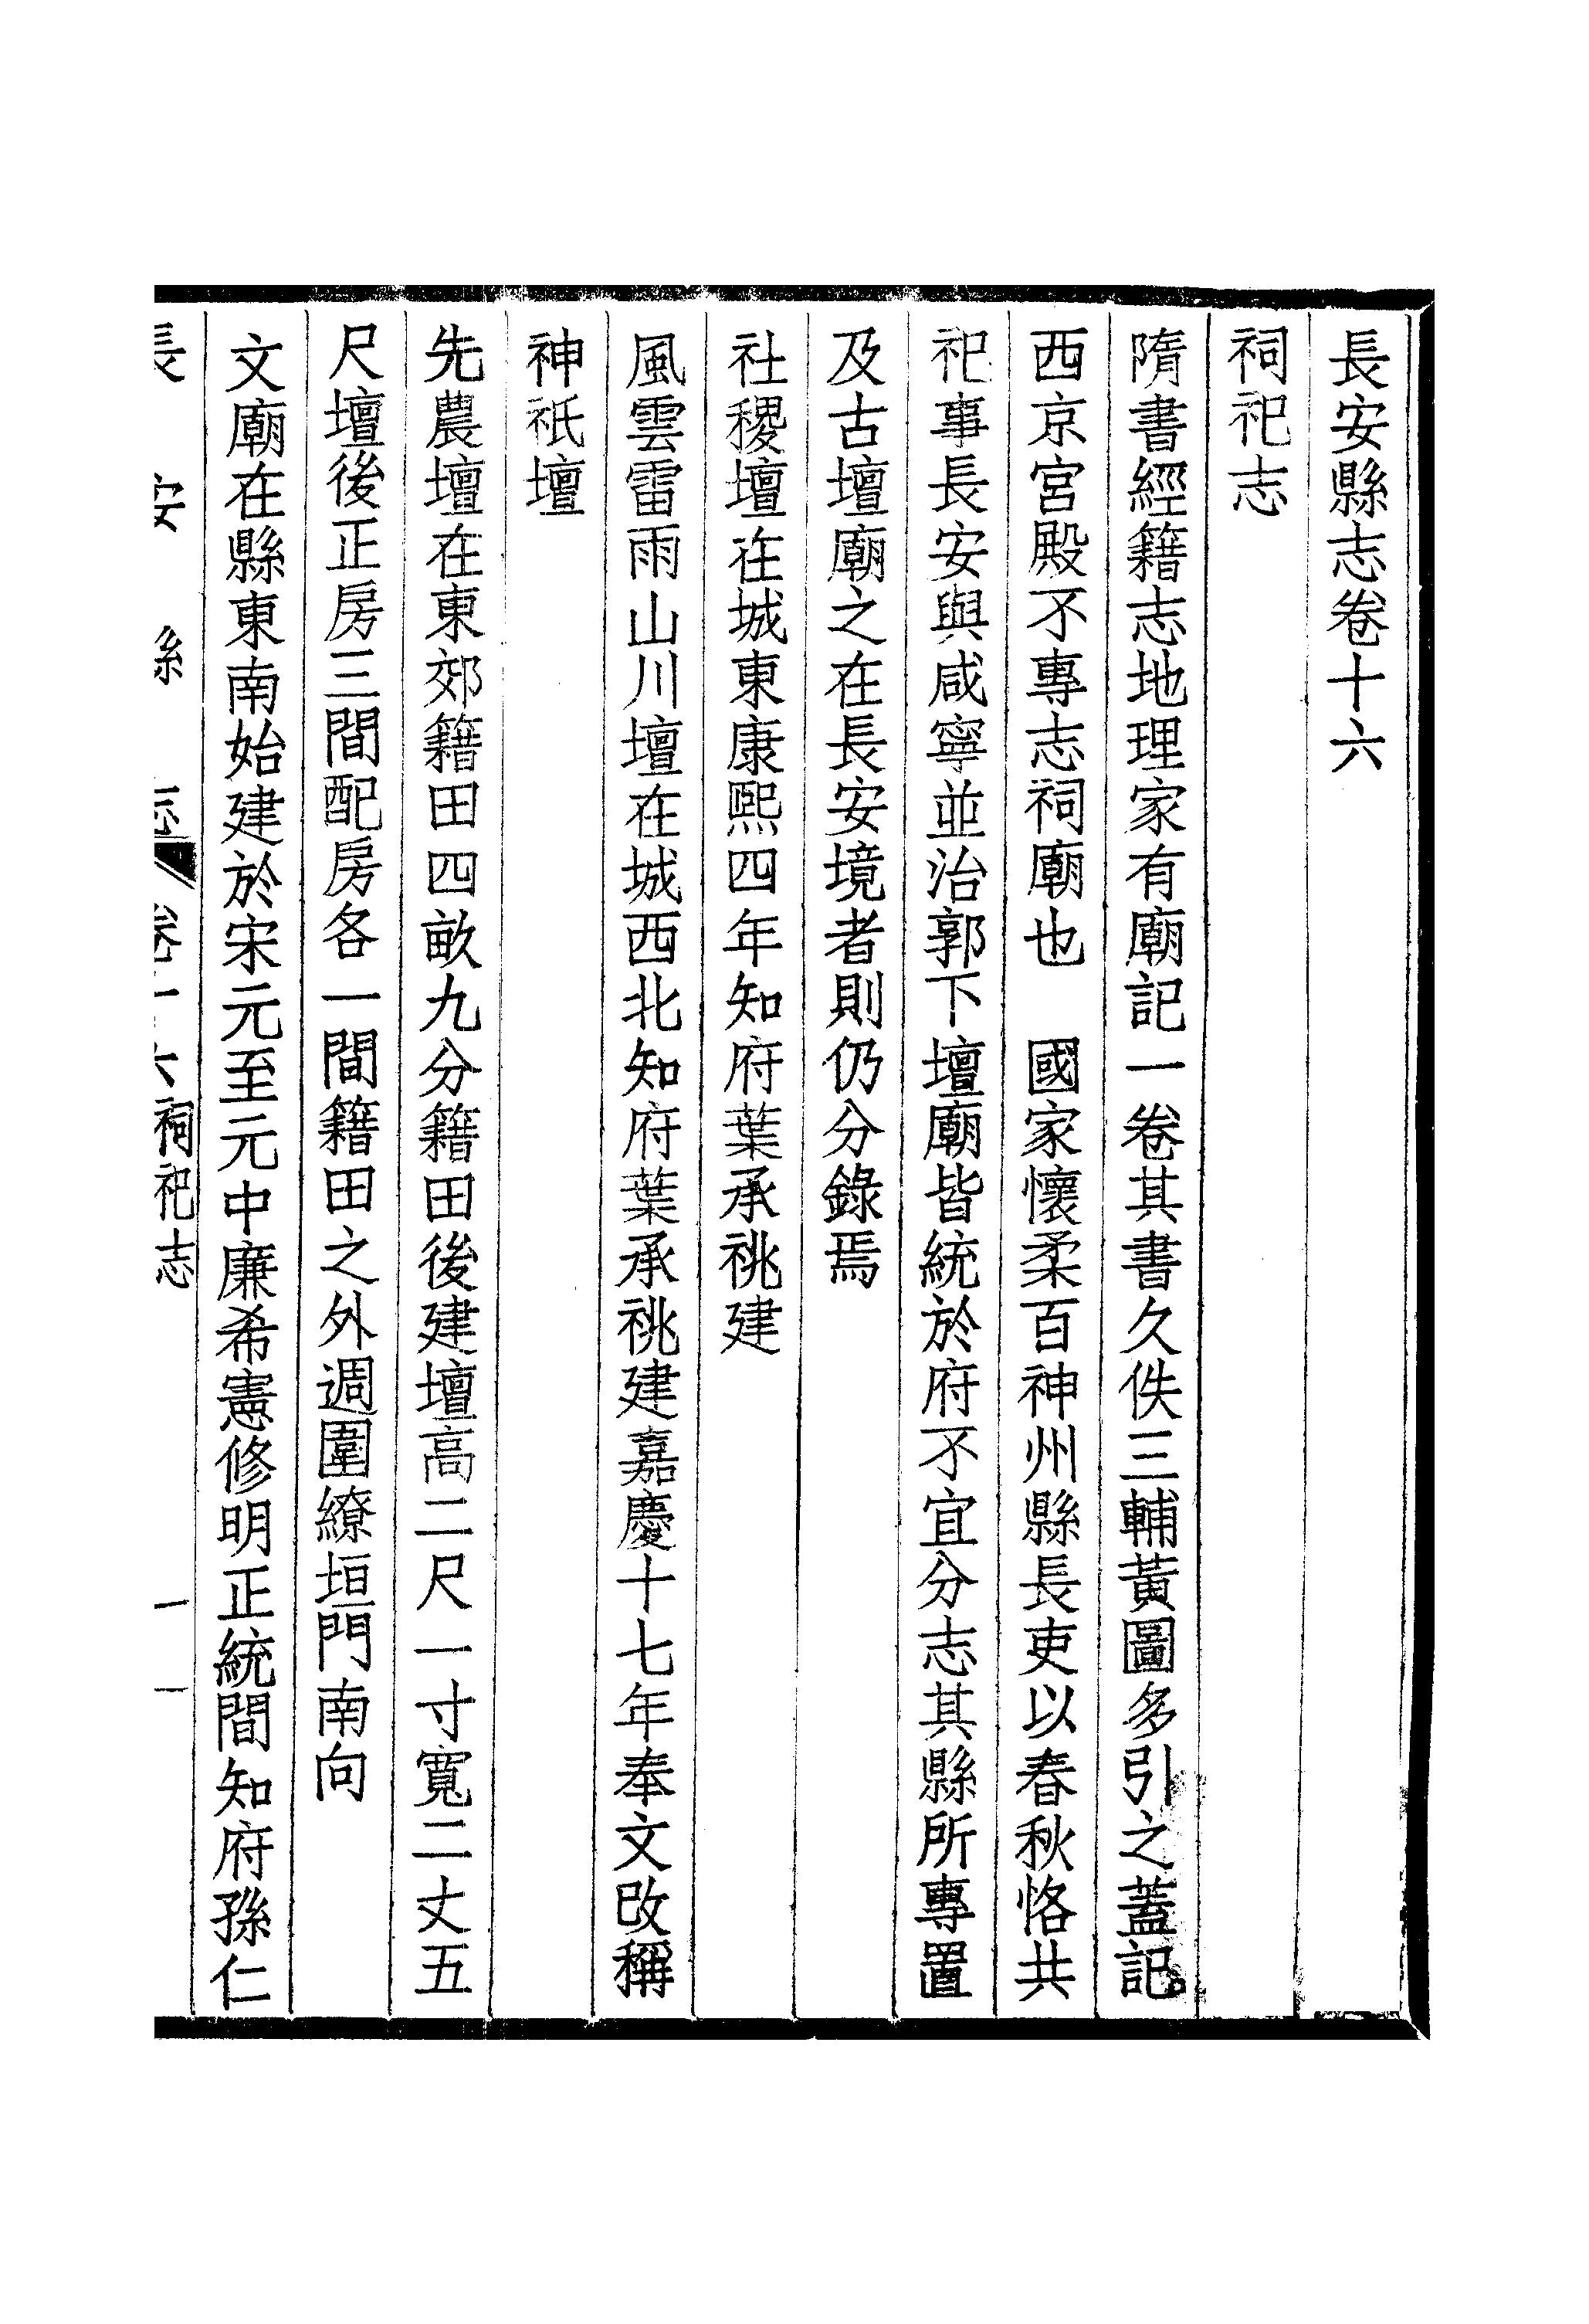 長安縣志卷十六
祠祀志
隋書經籍志地理家有廟記一卷其書久佚三輔黃圖多引之蓋記
西京宮殿不專志祠廟也　國家懷柔百神州縣長吏以春秋恪共
祀事長安與咸寧並治郭下壇廟皆統於府不宜分志其縣所專置
及古壇廟之在長安境者則仍分錄焉
社稷壇在城東康熙四年知府葉承祧建
風雲雷雨山川壇在城西北知府葉承祧建嘉慶十七年奉文改稱
神祇壇
先農壇在東郊籍田四畝九分籍田後建壇高二尺一寸寬二丈五
尺壇後正房三間配房各一間籍田之外週圍繚垣門南向
文廟在縣東南始建於宋元至元中廉希憲修明正統間知府孫仁
長安縣志 卷十六祠祀志 一